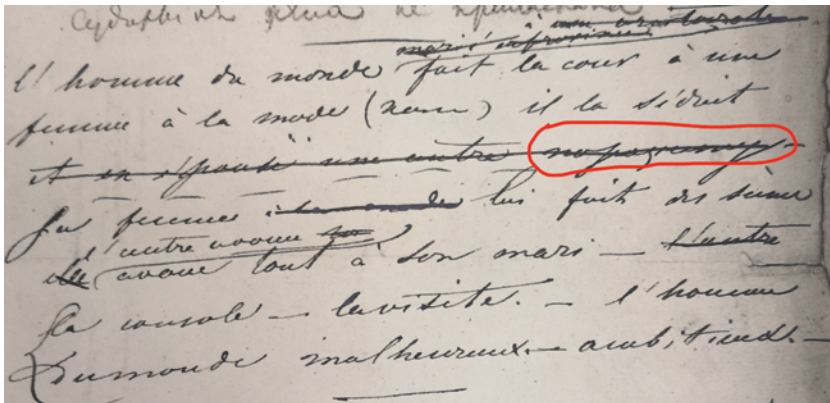 l'homme du monde fait la cour à une
femme à la mode (         ) il la séduit
et en épouse une autre по расчету
Sa femme lui fait des scène
l'autre avoue
avoue tout à son mari — l'autre
la console — la visite. — l'homme
du monde malheureux — ambitieux. —